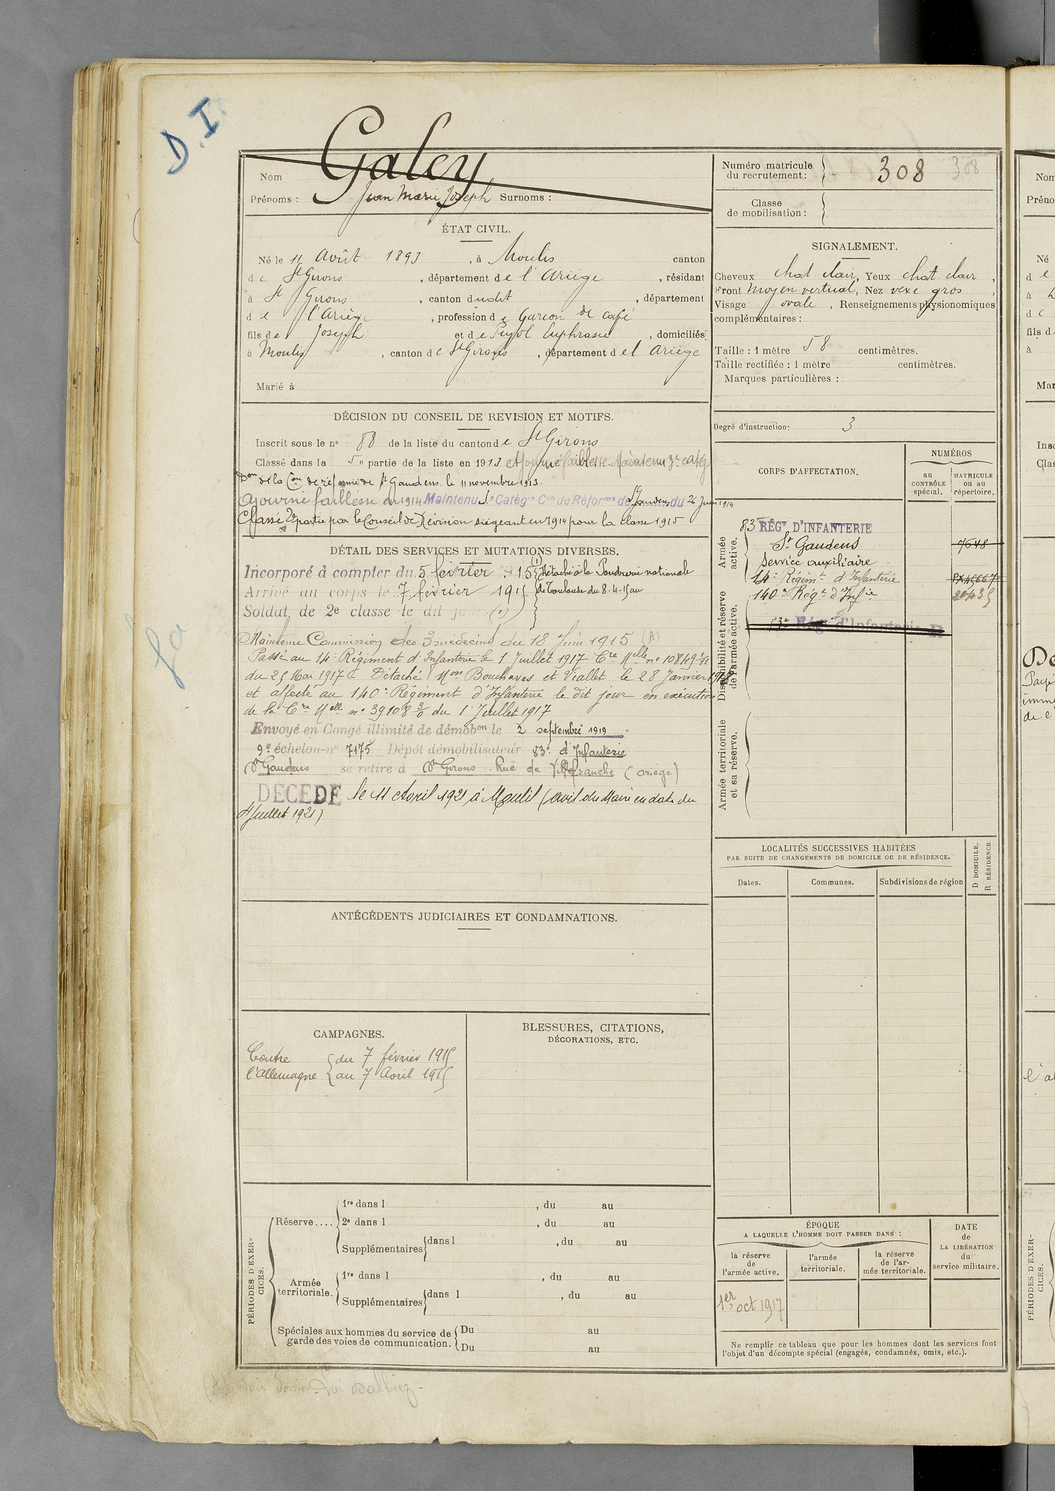 D.I
Nom Galey
Prénoms : Jean Marie Joseph Surnoms :
Numéro matricule du recrutement : 308 308
Classe de mobilisation :
ÉTAT CIVIL.
Né le 11 Août 1893, à Moulis canton
de St Girons, département de l'Ariège, résidant
à St Girons, canton dudit, département
de l'Ariège, profession de Garçon de café
fils de Joseph et de Peyol Euphrasie, domiciliés
à Moulis, canton de St Girons, département de l'Ariège
Marié à
SIGNALEMENT.
Cheveux chat clair, Yeux chat clair,
Front moyen vertical, Nez vexe gros,
Visage ovale, Renseignements physionomiques
complémentaires :
Taille : 1 mètre 58 centimètres.
Taille rectifiée : 1 mètre centimètres.
Marques particulières :
Degré d'instruction : 3
DÉCISION DU CONSEIL DE REVISION ET MOTIFS.
Inscrit sous le no 88 de la liste du canton de St Girons
Classé dans la 5e partie de la liste en 1913 Ajourné faiblesse. Maintenu 3e catég.
Don de la Con de réforme de St Gaudens. le 11 novembre 1913.
Ajourné faiblesse en 1914 Maintenu Se Catégie Con de Réforme St Gaudens du 26 Juin 1914
Classé 2e partie par le Conseil de Révision siégeant en 1914 pour la classe 1915
DÉTAIL DES SERVICES ET MUTATIONS DIVERSES.
Incorporé à compter du 5 février 1915 (1) Détaché à la Poudrerie nationale
Arrivé au corps le 7 février 1915 de Toulouse du 8-4-15 au
Soldat de 2e classe le dit jour (1)
Maintenu Commission des 3 médecins du 18 Juin 1915 (A)
Passé au 14e Régiment d'Infanterie le 1 Juillet 1917 Cre Mlle no 10849
du 25 Mai 1917 Détaché Mon Bouchayes et Viallet le 28 Janvier 1918
et affecté au 140e Régiment d'Infanterie le dit jour en exécution
de la Cre Mlle no 39108 du 1 Juillet 1917
Envoyé en Congé illimité de démobon le 2 septembre 1919
9e échelon no 7175 Dépôt démobilisateur 83e d'Infanterie
St Gaudens se retire à St Girons Rue de Villefranche (Ariège)
DÉCÉDÉ le 11 Avril 1921 à Moulis (avis du Maire en date du
4 Juillet 1921)
CORPS D'AFFECTATION.
NUMÉROS
au CONTRÔLE spécial.
MATRICULE ou au répertoire.
Armée active.
83 RÉGt D'INFANTERIE
St Gaudens 7648
Service auxiliaire
14e Régimt d'Infanterie
140e Régt d'Infie
Disponibilité et réserve de l'armée active.
83e Régt d'Infanterie
Armée territoriale et sa réserve.
LOCALITÉS SUCCESSIVES HABITÉES
PAR SUITE DE CHANGEMENTS DE DOMICILE OU DE RÉSIDENCE.
Dates.
Communes.
Subdivisions de région
D DOMICILE.
R RÉSIDENCE
ANTÉCÉDENTS JUDICIAIRES ET CONDAMNATIONS.
CAMPAGNES.
Contre l'Allemagne
du 7 février 1915
au 7 Avril 1915
BLESSURES, CITATIONS,
DÉCORATIONS, ETC.
PÉRIODES D'EXERCICES.
Réserve....
1re dans l , du au
2e dans l , du au
Supplémentaires dans l , du au
au
Armée territoriale.
1re dans l , du au
Supplémentaires dans l , du au
Spéciales aux hommes du service de garde des voies de communication.
Du au
Du au
ÉPOQUE
A LAQUELLE L'HOMME DOIT PASSER DANS :
la réserve de l'armée active.
l'armée territoriale.
la réserve de l'armée territoriale.
DATE de LA LIBÉRATION du service militaire.
1er oct 1917
Ne remplir ce tableau que pour les hommes dont les services font
l'objet d'un décompte spécial (engagés, condamnés, omis, etc.).